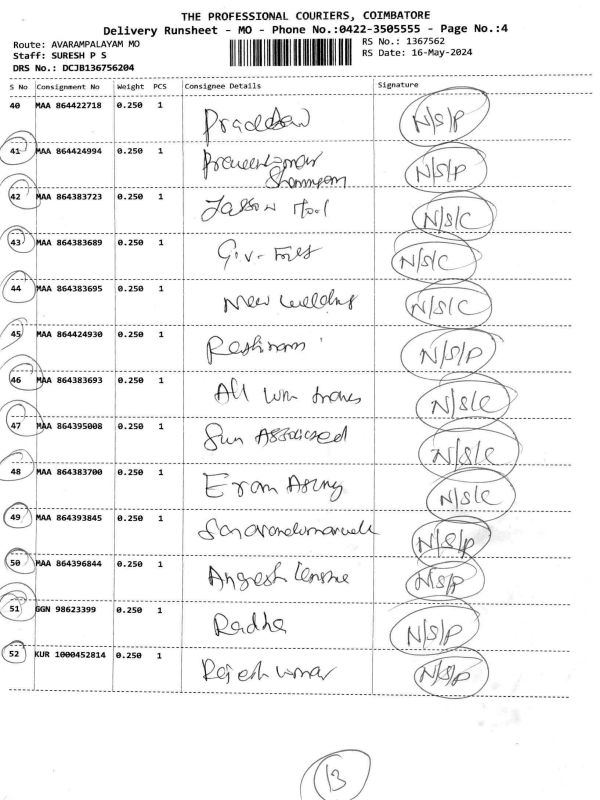 THE PROFESSIONAL COURIERS, COIMBATORE
Delivery Runsheet - MO - Phone No.:0422-3505555 - Page No.:4
Route: AVARAMPALAYAM MO RS No.: 1367562
Staff: SURESH P S RS Date: 16-May-2024
DRS No.: DCJB136756204
S No Consignment No Weight PCS Consignee Details Signature
40 MAA 864422718 0.250 1 N/S/P
41 MAA 864424994 0.250 1 N/S/P
42 MAA 864383723 0.250 1 N/S/C
43 MAA 864383689 0.250 1 G.V. N/S/C
44 MAA 864383695 0.250 1 New welding N/S/C
45 MAA 864424930 0.250 1 N/S/P
46 MAA 864383693 0.250 1 All N/S/C
47 MAA 864395008 0.250 1 Sun N/S/C
48 MAA 864383700 0.250 1 N/S/C
49 MAA 864393845 0.250 1 N/S/P
50 MAA 864396844 0.250 1 N/S/P
51 GGN 98623399 0.250 1 Radha N/S/P
52 KUR 1000452814 0.250 1 Rajesh kumar N/S/P
13